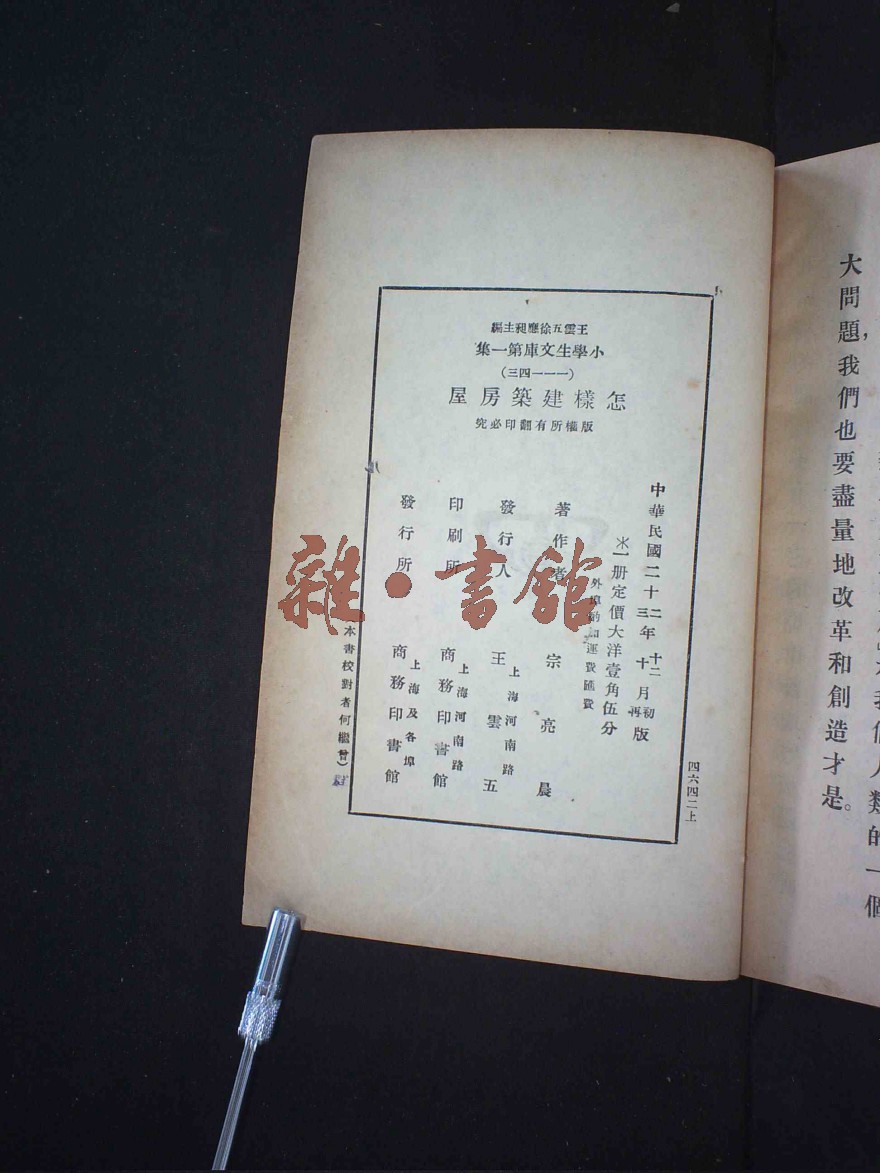 王雲五徐應昶主編
小學生文庫第一集
(一一一一四三)
怎樣建築房屋
版權所有翻印必究
中華民國二十二年十二月初版
三年十月再版
※一册定價大洋壹角伍分
外埠酌加運費匯費
著作者 宗亮晨
發行人 王雲五
上海河南路
印刷所 商務印書館
上海河南路
發行所 商務印書館
上海及各埠
本書校對者何繼曾)
四六四二上
雜·書館
大問題,我們也要盡量地改革和創造才是。
我們人類的一個